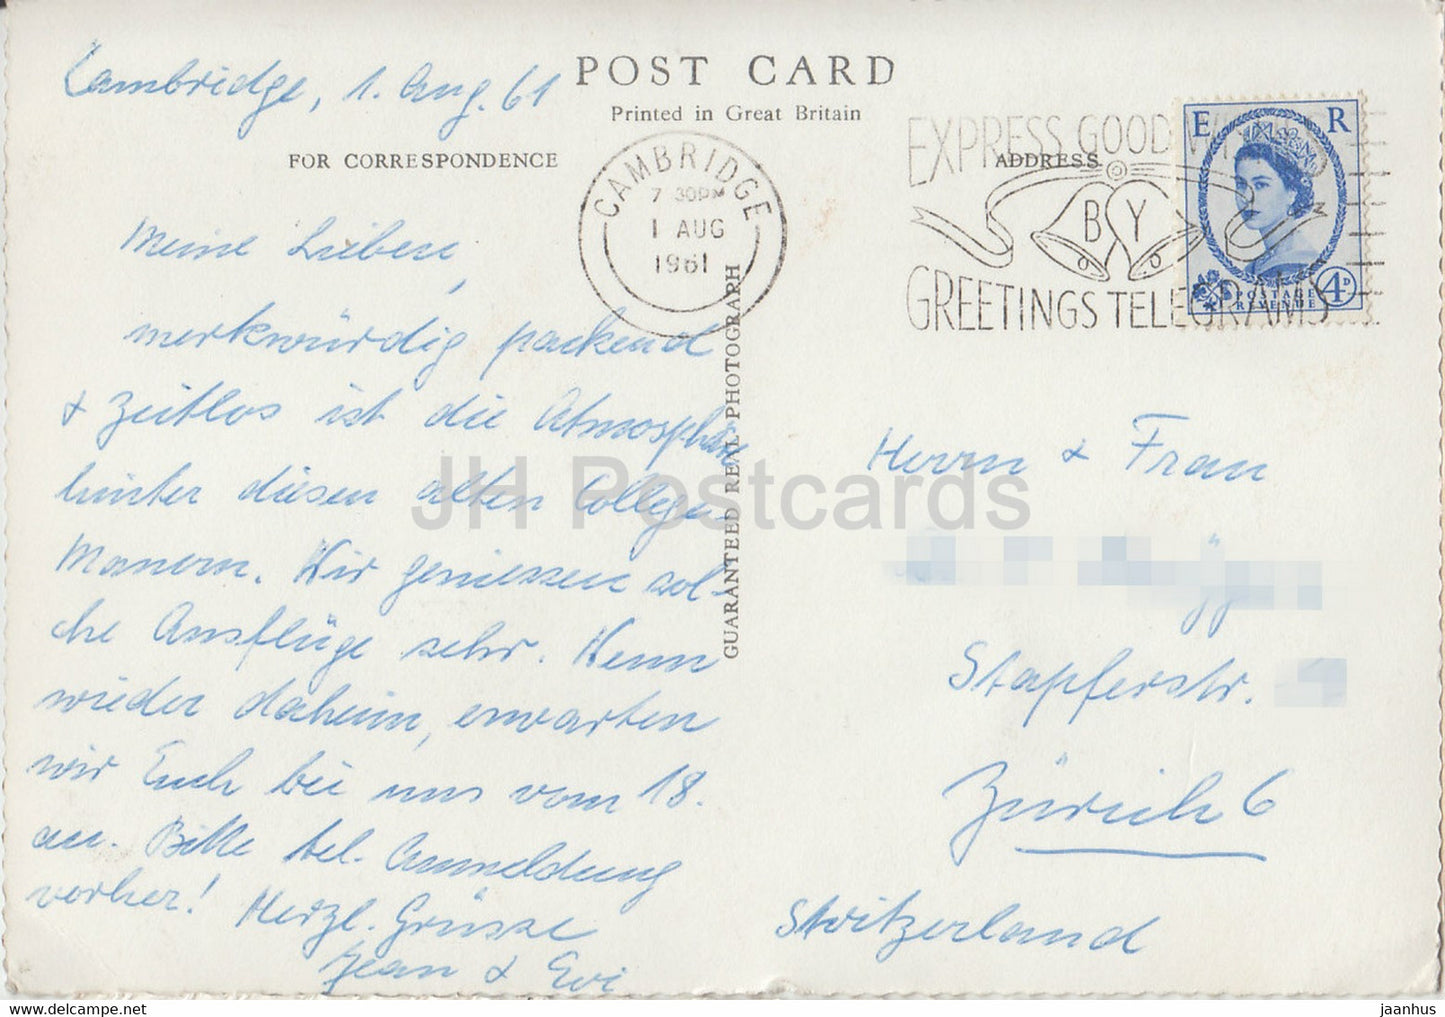 Cambridge, 1. Aug. 61
POST CARD
Printed in Great Britain
FOR CORRESPONDENCE
ADDRESS
CAMBRIDGE
7 30PM
1 AUG
1961
EXPRESS GOOD
BY
GREETINGS TELEGRAMS
E R
POSTAGE
REVENUE
4D
Meine Lieben,
merkwürdig packend
& zeitlos ist die Atmosphäre
hinter diesen alten College-
Mauern. Wir geniessen sol-
che Ausflüge sehr. Wenn
wieder daheim, erwarten
wir Euch bei uns vom 18.
an. Bitte tel. Anmeldung
vorher! Herzl. Grüsse
Jean & Evi
GUARANTEED REAL PHOTOGRAPH
Herrn & Frau
Stapferstr.
Zürich 6
Switzerland
JH Postcards
https://www.hippostcard.com
jaanhus